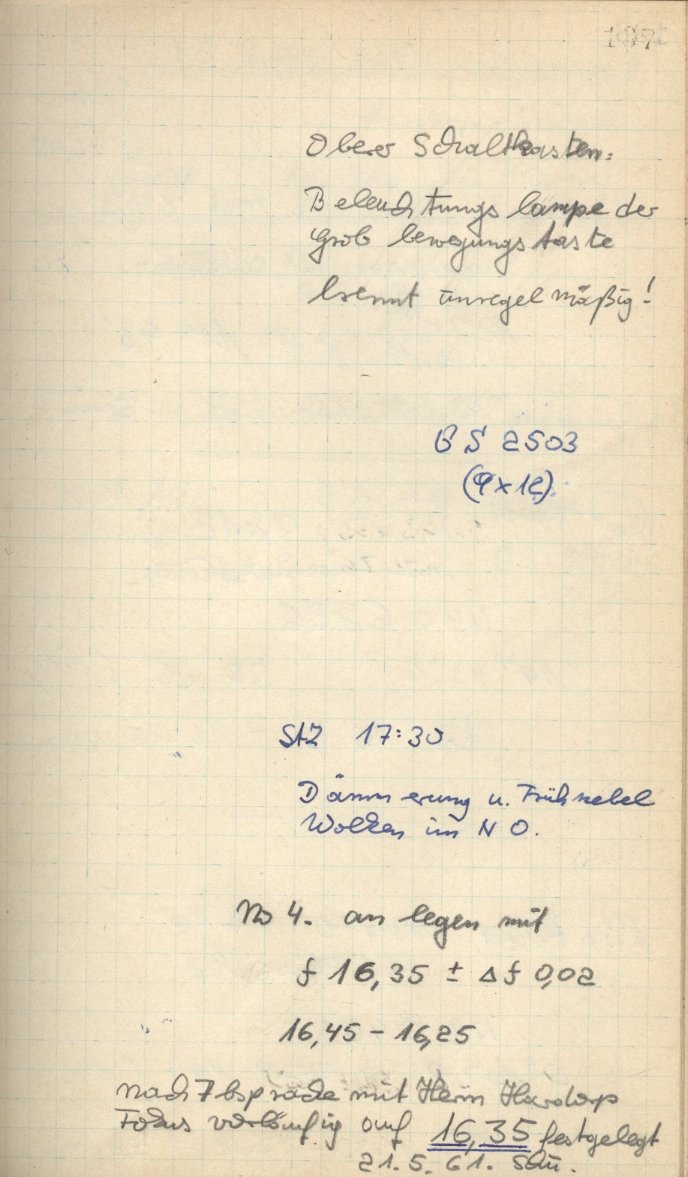 Oberer Schaltkasten:
Beleuchtungslampe der
Grobbewegungstaste
brennt unregelmäßig!
GS 2503
(9x12)
StZ 17:30
Dämmerung u. Frühnebel
Wolken im NO.
No 4. anlegen mit
f 16,35 ± Δf 0,02
16,45 - 16,25
nach Absprache mit Herrn Hardorp
Fokus vorläufig auf 16,35 festgelegt
21.5.61. Schu.